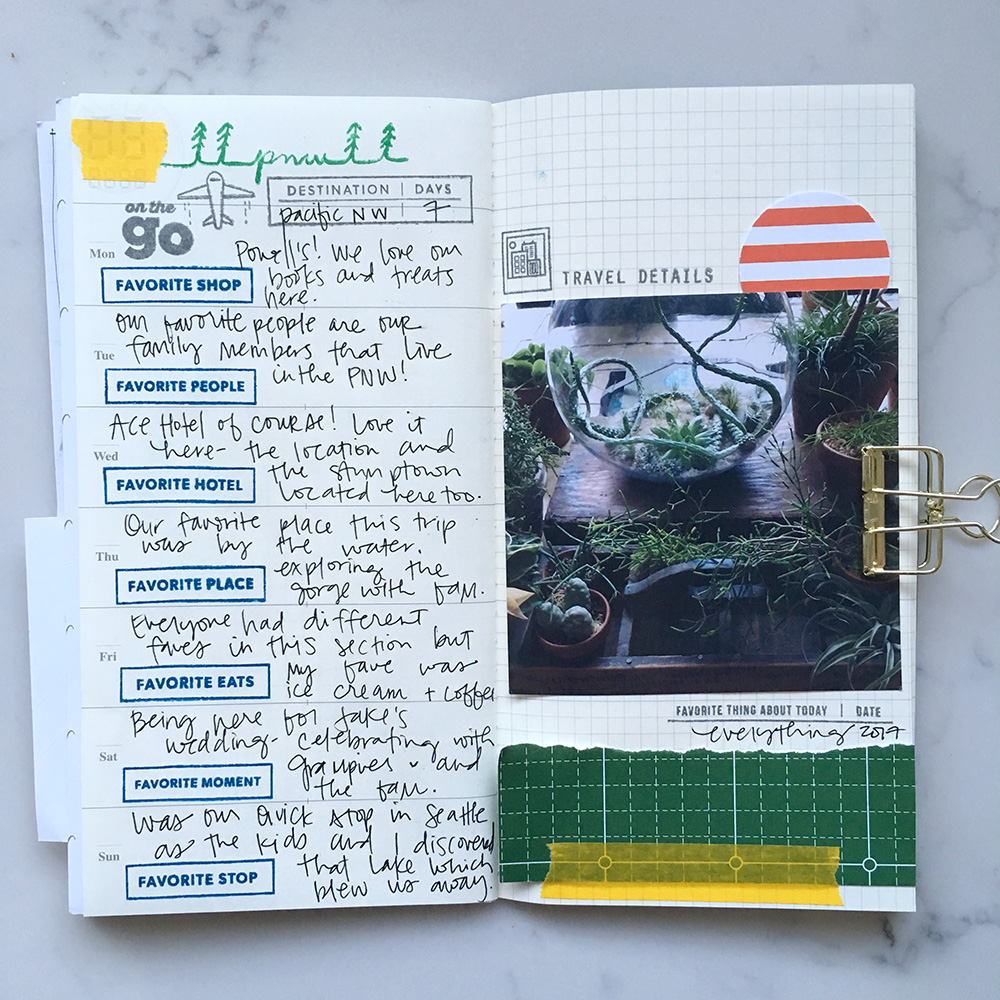 pnw
on the
go
DESTINATION | DAYS
pacific NW | 7
Mon
Powell's! We love our
books and treats
here.
FAVORITE SHOP
our favorite people are our
family members that live
in the PNW!
Tue
FAVORITE PEOPLE
Ace Hotel of course! Love it
here- the location and
the stumptown
located here too.
Wed
FAVORITE HOTEL
Our favorite place this trip
was by the water.
exploring the
gorge with fam.
Thu
FAVORITE PLACE
Everyone had different
faves in this section but
my fave was
ice cream + coffee
Fri
FAVORITE EATS
Being here for Jake's
wedding- celebrating with
and
the fam.
Sat
FAVORITE MOMENT
Was our quick stop in Seattle
as the kids and I discovered
that lake which
blew us away.
Sun
FAVORITE STOP
TRAVEL DETAILS
FAVORITE THING ABOUT TODAY | DATE
everything 2017